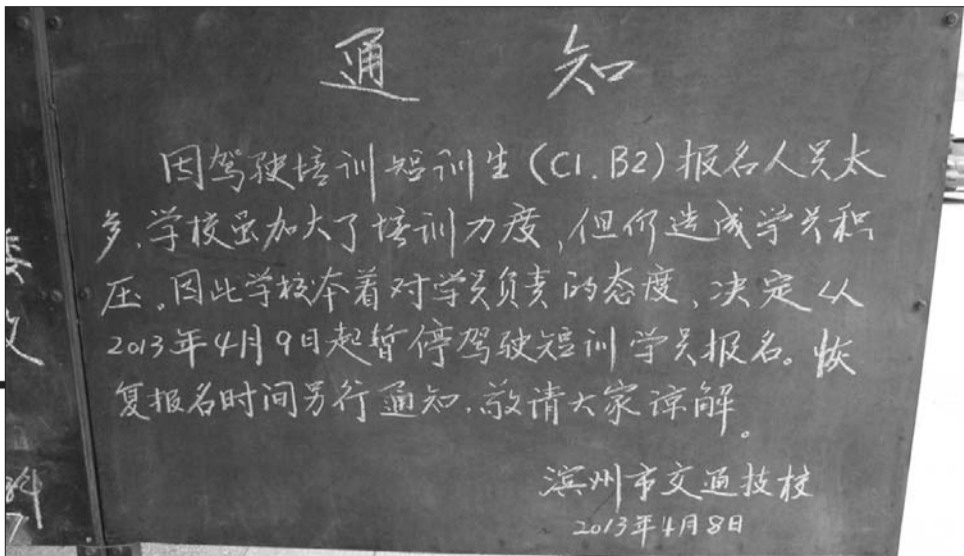 通 知
因驾驶培训短训生(C1.B2)报名人员太
多,学校虽加大了培训力度,但仍造成学员积
压。因此学校本着对学员负责的态度,决定从
2013年4月9日起暂停驾驶短训学员报名。恢
复报名时间另行通知,敬请大家谅解。
滨州市交通技校
2013年4月8日